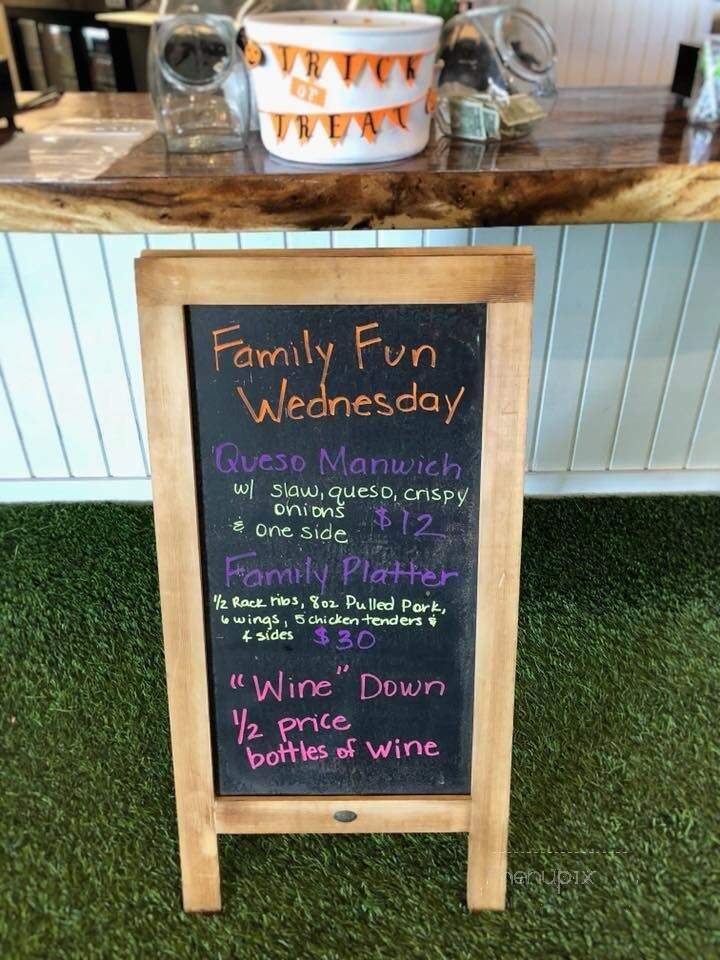 TRICK
OR
TREAT
Family Fun
Wednesday
Queso Manwich
w/ slaw, queso, crispy
onions
& one side $12
Family Platter
1/2 Rack ribs, 8oz Pulled Pork,
6 wings, 5 chicken tenders &
4 sides $30
"Wine" Down
1/2 price
bottles of wine
menupix